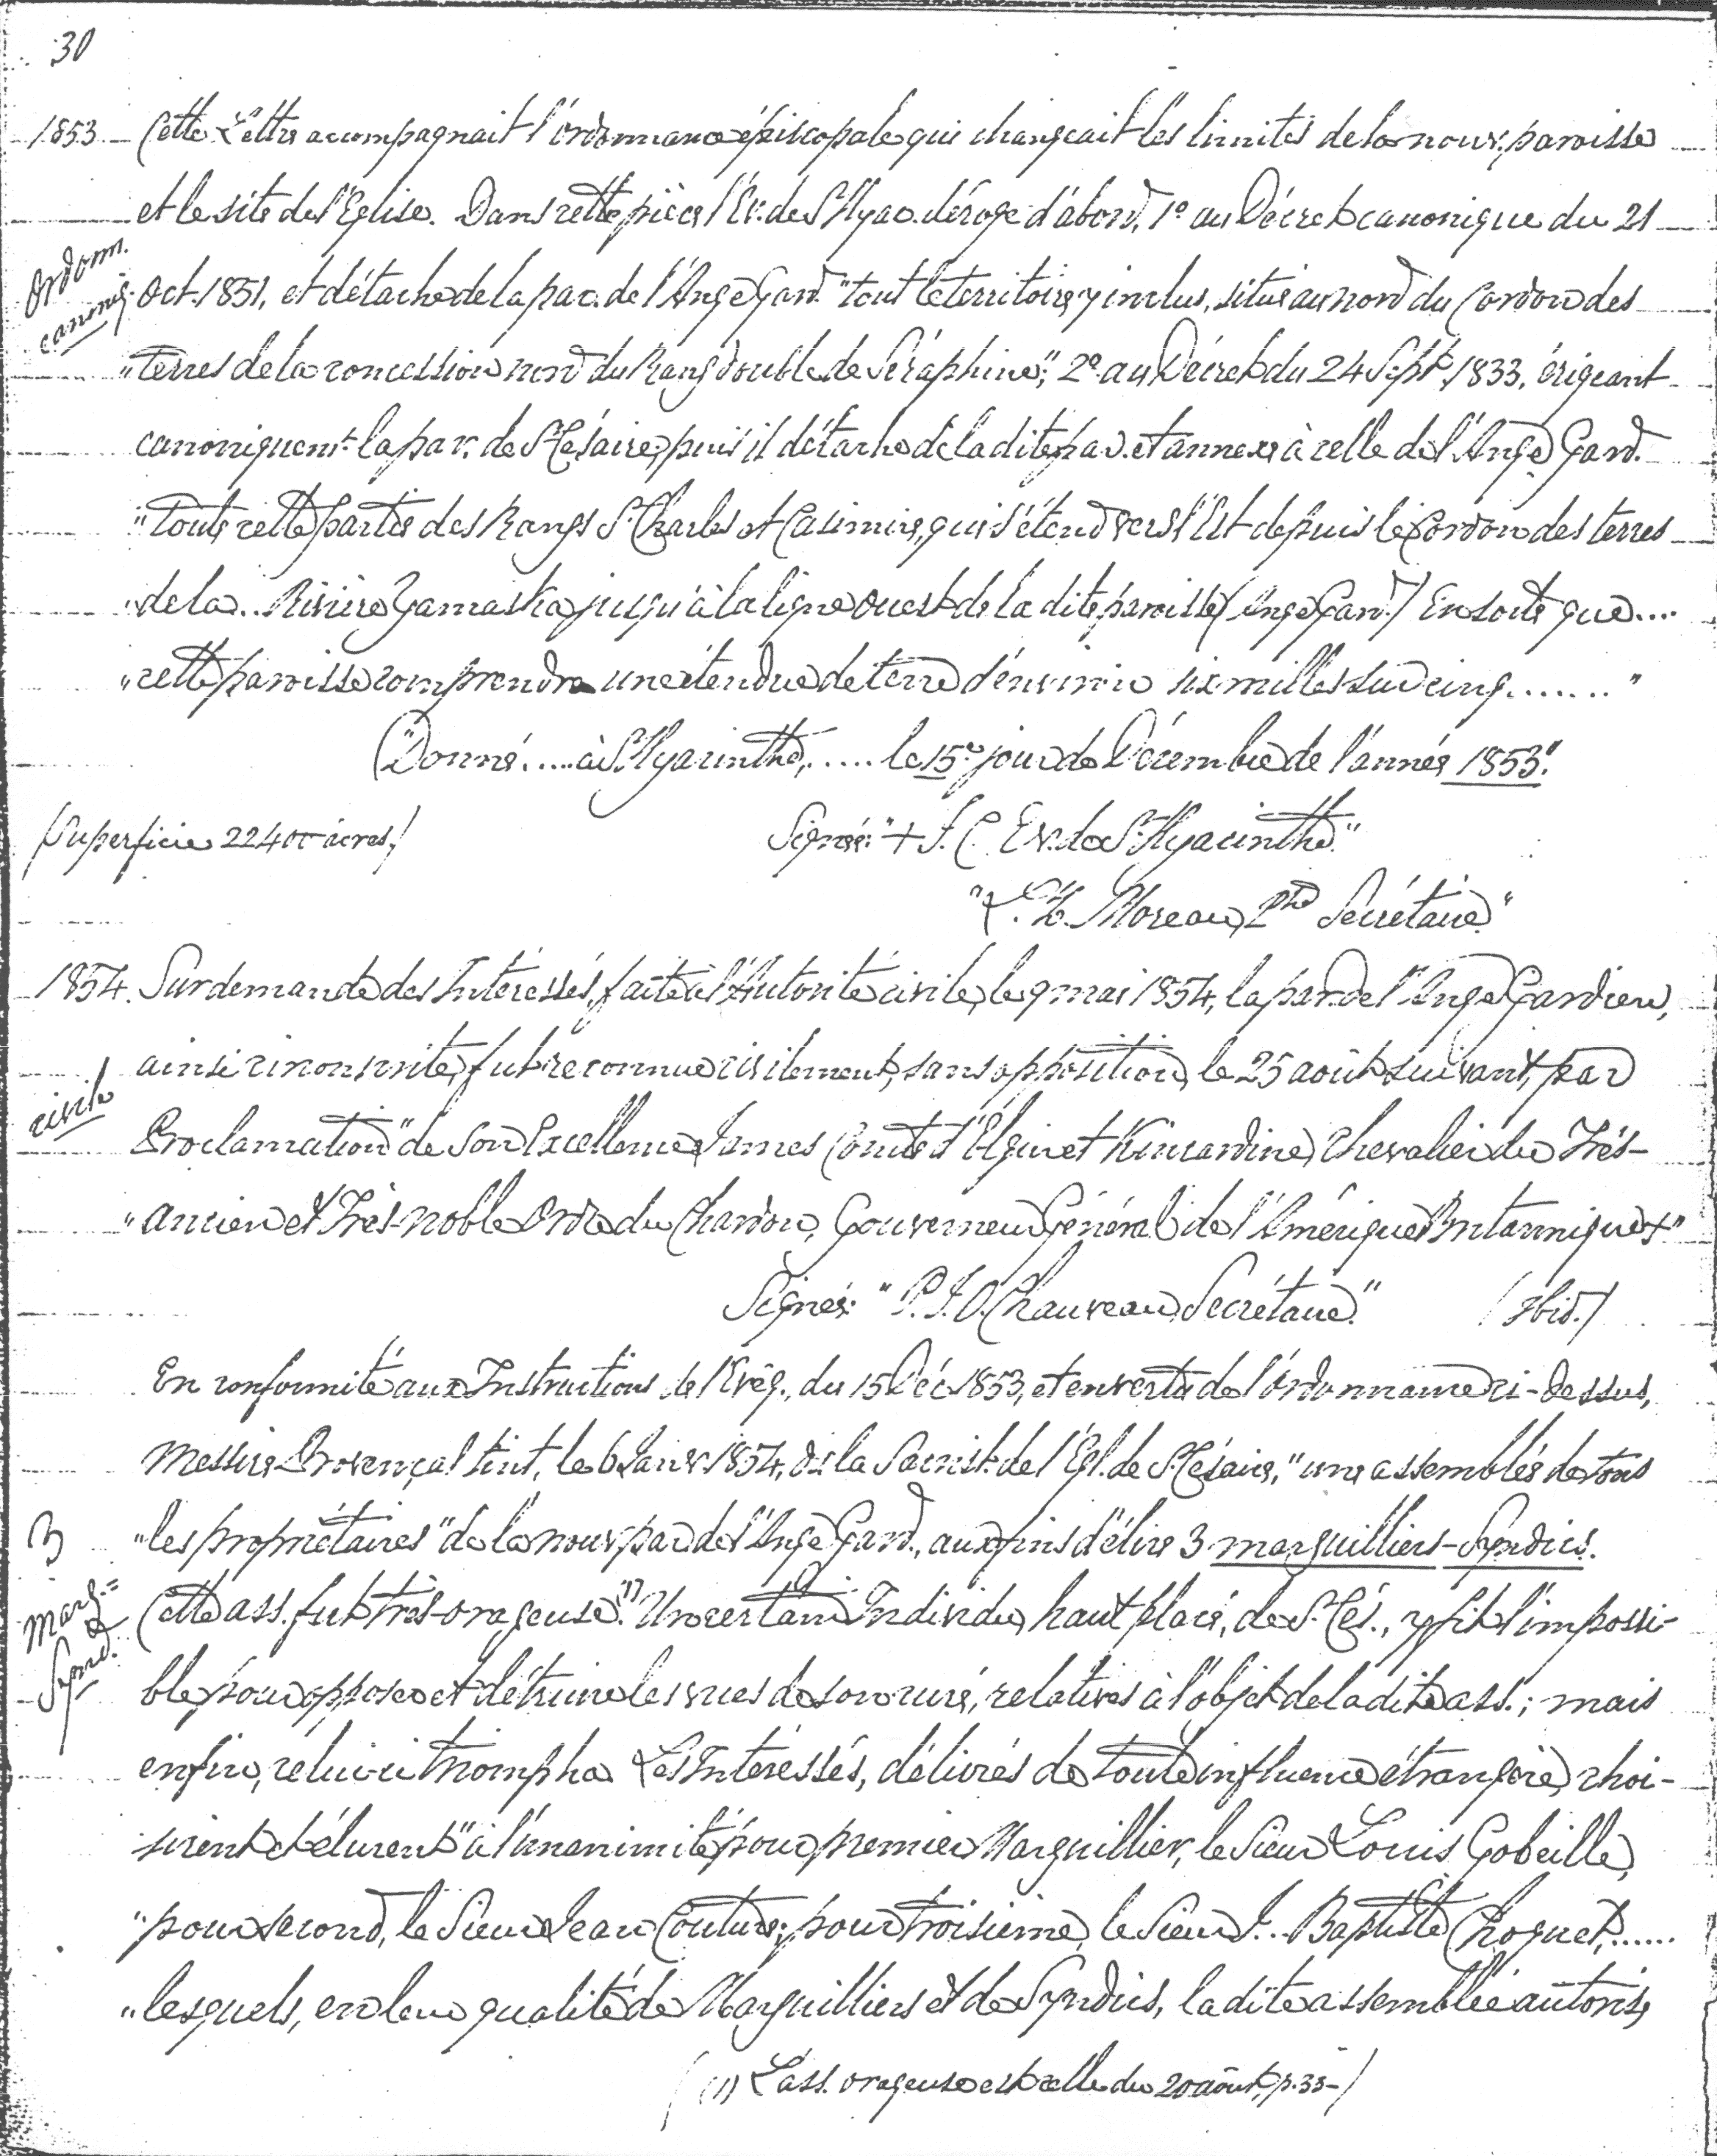 30
1853 – Cette Lettre accompagnait l'Ordonnance épiscopale qui changeait les limites de la nouv. paroisse
et le site de l'Eglise. Dans cette pièce l'Ev. de St Hyac. déroge d'abord, 1o au Décret canonique du 21
Ordonn.
canoniq.
Oct. 1851, et détache de la par. de l'Ange Gard. "tout le territoire y inclus, situé au nord du Cordon des
"terres de la concession nord du Rang double de Séraphine"; 2o au Décret du 24 Sept. 1833, érigeant
canoniquemt la par. de St Césaire; puis il détache de la dite par. et annexe à celle de l'Ange Gard.
"toute cette partie des Rangs St Charles et Casimir, qui s'étend vers l'Est depuis le Cordon des terres
"de la .. Rivière Yamaska jusqu'à la ligne ouest de la dite paroisse (Ange Gard.) En sorte que....
"cette paroisse comprendra une étendue de terre d'environ six milles sur cinq ......."
"Donné ..... à St Hyacinthe, ..... le 15e jour de Décembre de l'année 1853".
(Superficie 22400 acres)
Signé: "+ J. C. Ev. de St Hyacinthe"
"L. Z. Moreau, Ptre Secrétaire"
1854. Sur demande des Intéressés, faite à l'Autorité civile, le 9 mai 1854, la par. de l'Ange Gardien,
ainsi circonscrite, fut reconnue civilement, sans opposition, le 25 août suivant, par
civile
Proclamation "de Son Excellence James Comte d'Elgin et Kincardine, Chevalier du Très-
"ancien et Très-noble Ordre du Chardon, Gouverneur Général de l'Amérique Britannique +"
Signé: "P. J. O. Chauveau, Secrétaire." (Ibid.)
En conformité aux Instructions de l'Evêq., du 15 Déc. 1853, et en vertu de l'Ordonnance ci-dessus,
Messire Provençal tint, le 6 Janv. 1854, ds la Sacrist. de l'Egl. de St Césaire, "une assemblée de tous
3
"les propriétaires" de la nouv. par. de l'Ange Gard., aux fins d'élire 3 marguilliers-Syndics.
Marg.=
&
Synd.
Cette ass. fut très-orageuse.(1) Un certain Individu, haut placé, de St Cés., y fit l'impossi-
ble pour opposer et détruire les vues de son curé, relatives à l'objet de la dite ass.; mais
enfin, celui-ci triompha. Les Intéressés, délivrés de toute influence étrangère, choi-
sirent et élurent "à l'unanimité pour premier Marguillier, le Sieur Louis Gobeille,
"pour second, le Sieur Jean Couture; pour troisième, le Sieur J.. Baptiste Choquet, ......
"lesquels, en leur qualité de Marguilliers et de Syndics, la dite assemblée autorise
((1) L'ass. orageuse est celle du 20 août, p. 33-)